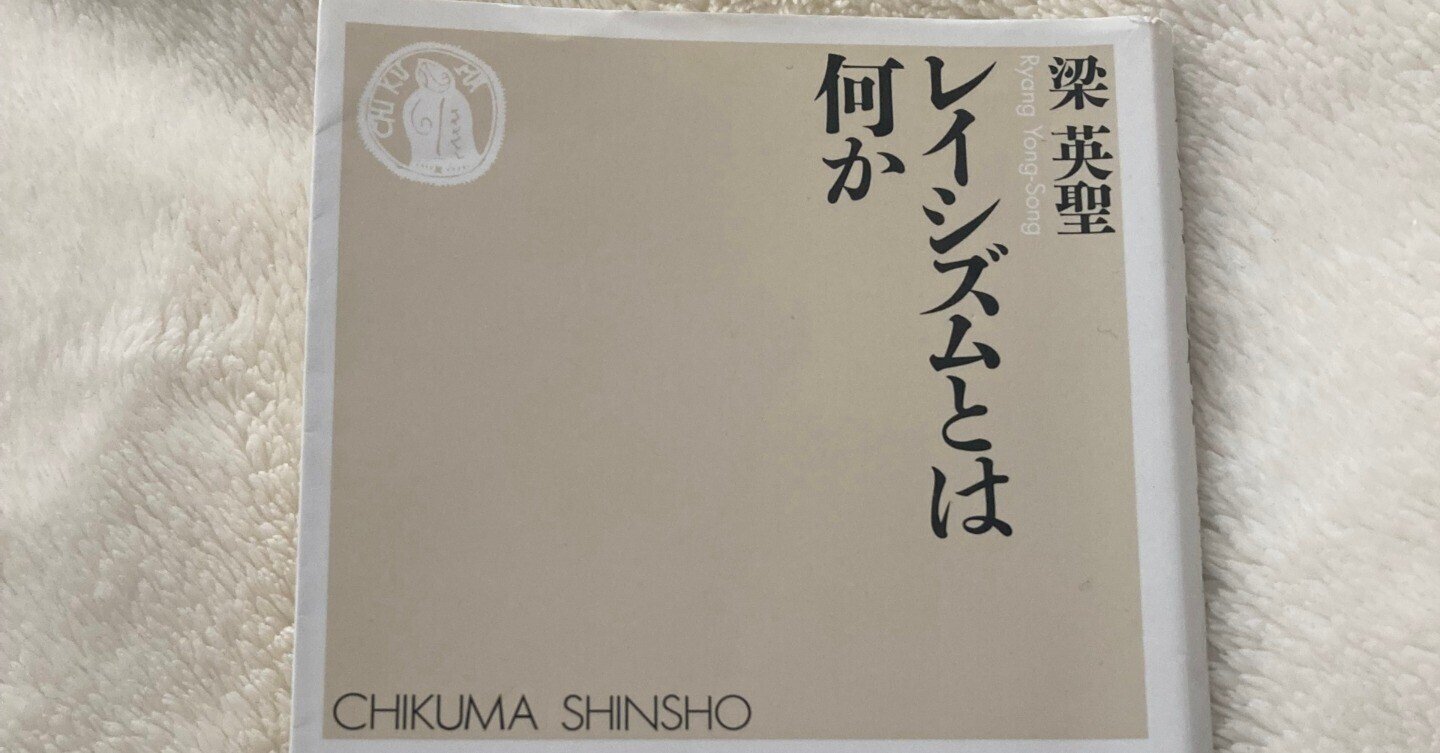 梁 英聖
Ryang Yong-Song
レイシズムとは
何か
CHIKUMA
CHIKUMA SHINSHO